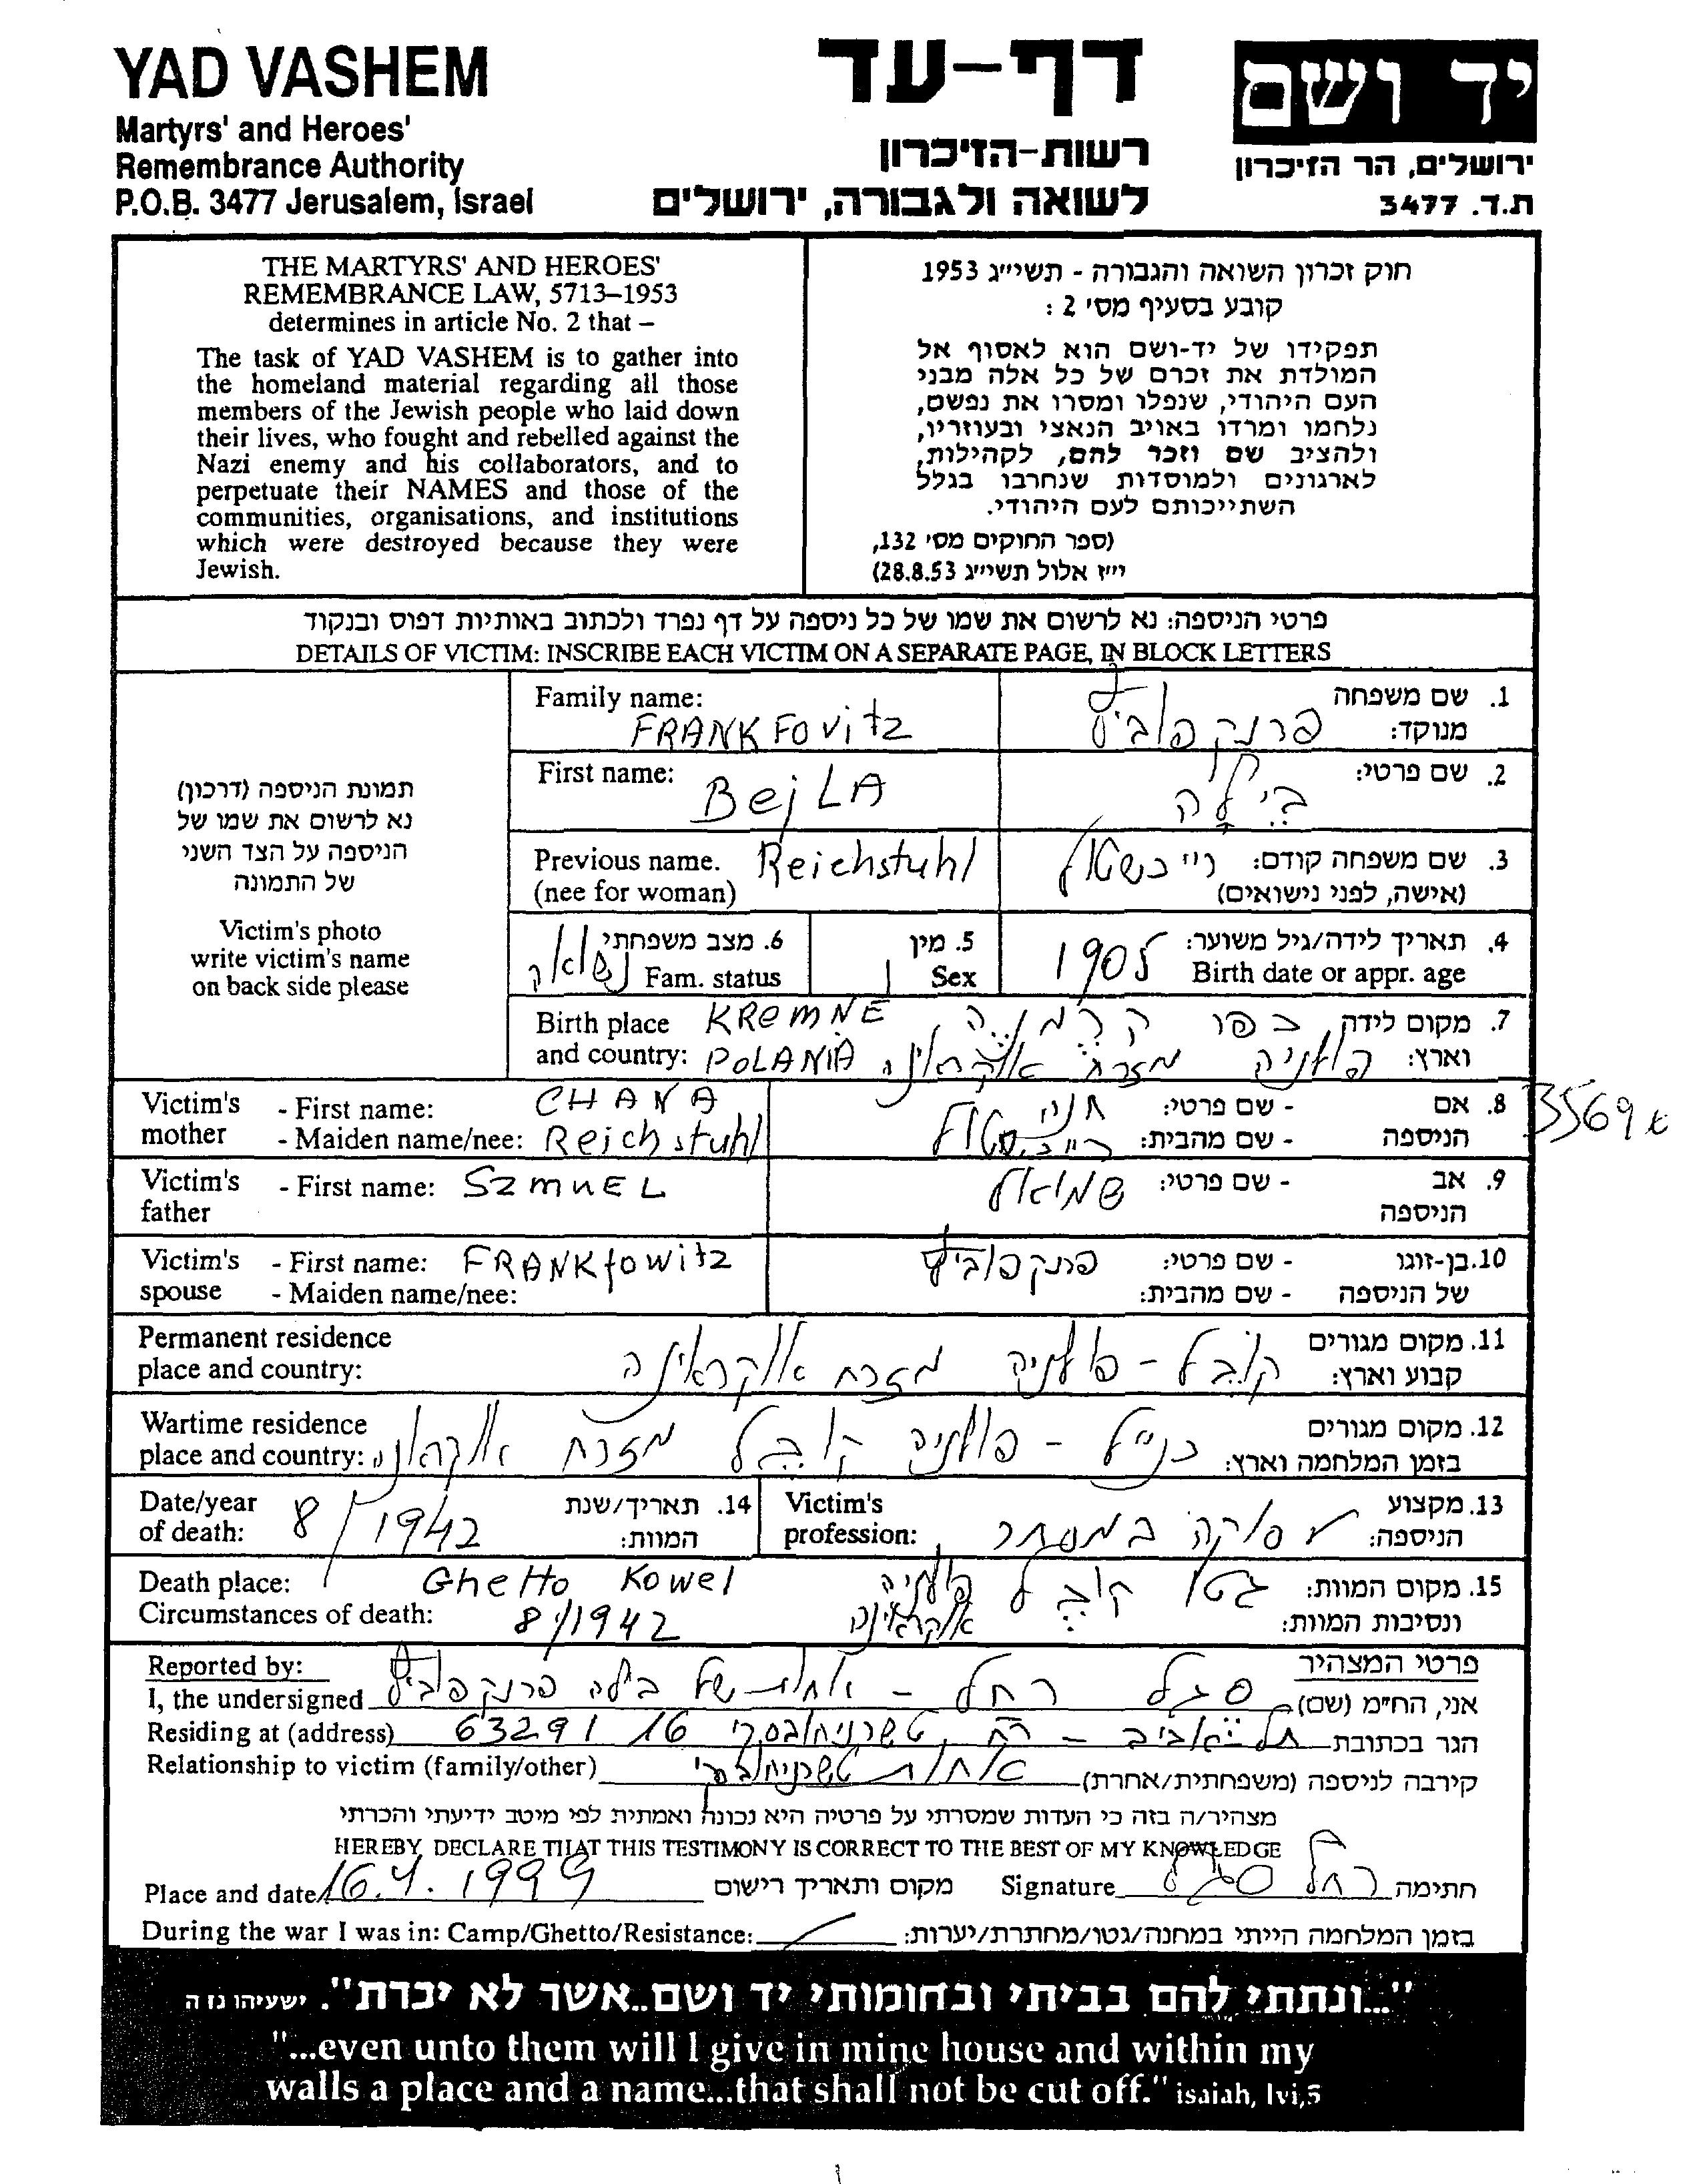 YAD VASHEM
Martyrs' and Heroes'
Remembrance Authority
P.O.B. 3477 Jerusalem, Israel
דף-עד
רשות-הזיכרון
לשואה ולגבורה, ירושלים
יד ושם
ירושלים, הר הזיכרון
ת.ד. 3477
THE MARTYRS' AND HEROES'
REMEMBRANCE LAW, 5713–1953
determines in article No. 2 that –
The task of YAD VASHEM is to gather into
the homeland material regarding all those
members of the Jewish people who laid down
their lives, who fought and rebelled against the
Nazi enemy and his collaborators, and to
perpetuate their NAMES and those of the
communities, organisations, and institutions
which were destroyed because they were
Jewish.
חוק זכרון השואה והגבורה - תשי״ג 1953
קובע בסעיף מס' 2 :
תפקידו של יד-ושם הוא לאסוף אל
המולדת את זכרם של כל אלה מבני
העם היהודי, שנפלו ומסרו את נפשם,
נלחמו ומרדו באויב הנאצי ובעוזריו,
ולהציב שם וזכר להם, לקהילות,
לארגונים ולמוסדות שנחרבו בגלל
השתייכותם לעם היהודי.
(ספר החוקים מס' 132,
י״ז אלול תשי״ג 28.8.53)
פרטי הניספה: נא לרשום את שמו של כל ניספה על דף נפרד ולכתוב באותיות דפוס ובנקוד
DETAILS OF VICTIM: INSCRIBE EACH VICTIM ON A SEPARATE PAGE, IN BLOCK LETTERS
תמונת הניספה (דרכון)
נא לרשום את שמו של
הניספה על הצד השני
של התמונה
Victim's photo
write victim's name
on back side please
Family name: 1. שם משפחה
FRANKFOVitz פרנקפוביץ מנוקד:
First name: BejLA בילה 2. שם פרטי:
Previous name. Reichstuhl רייכשטול 3. שם משפחה קודם:
(nee for woman) (אישה, לפני נישואים)
6. מצב משפחתי 5. מין 1905 4. תאריך לידה/גיל משוער:
נשואה Fam. status Sex Birth date or appr. age
Birth place KREMNE קרמנה בכפר 7. מקום לידה
and country: POLANIA פולניה מזרח אוקראינה וארץ:
Victim's - First name: CHANA חנה - שם פרטי: 8. אם
mother - Maiden name/nee: Reichstuhl רייכשטול - שם מהבית: הניספה
3569 א
Victim's - First name: SZMUEL שמואל - שם פרטי: 9. אב
father הניספה
Victim's - First name: FRANKfowitz פרנקפוביץ - שם פרטי: 10. בן-זוגו
spouse - Maiden name/nee: - שם מהבית: של הניספה
Permanent residence 11. מקום מגורים
place and country: קובל - פולניה מזרח אוקראינה קבוע וארץ:
Wartime residence 12. מקום מגורים
place and country: כנ״ל - פולניה קובל מזרח אוקראינה בזמן המלחמה וארץ:
Date/year 8/1942 14. תאריך/שנת Victim's 13. מקצוע
of death: המוות: profession: עסקה במסחר הניספה:
Death place: Ghetto Kowel גטו קובל פולניה 15. מקום המוות:
Circumstances of death: 8/1942 אוקראינה ונסיבות המוות:
Reported by: פרטי המצהיר
I, the undersigned סגל רחל - אחות של בילה פרנקפוביץ אני, הח״מ (שם)
Residing at (address) תל-אביב - רח טשרניחובסקי 16 63291 הגר בכתובת
Relationship to victim (family/other) אחות טשרניחובסקי קירבה לניספה (משפחתית/אחרת)
מצהיר/ה בזה כי העדות שמסרתי על פרטיה היא נכונה ואמתית לפי מיטב ידיעתי והכרתי
HEREBY DECLARE THAT THIS TESTIMONY IS CORRECT TO THE BEST OF MY KNOWLEDGE
Place and date 16.4.1999 מקום ותאריך רישום Signature רחל סגל חתימה
During the war I was in: Camp/Ghetto/Resistance: בזמן המלחמה הייתי במחנה/גטו/מחתרת/יערות:
"...ונתתי להם בביתי ובחומותי יד ושם..אשר לא יכרת". ישעיהו נז ה
"...even unto them will I give in mine house and within my
walls a place and a name...that shall not be cut off." isaiah, lvi,5